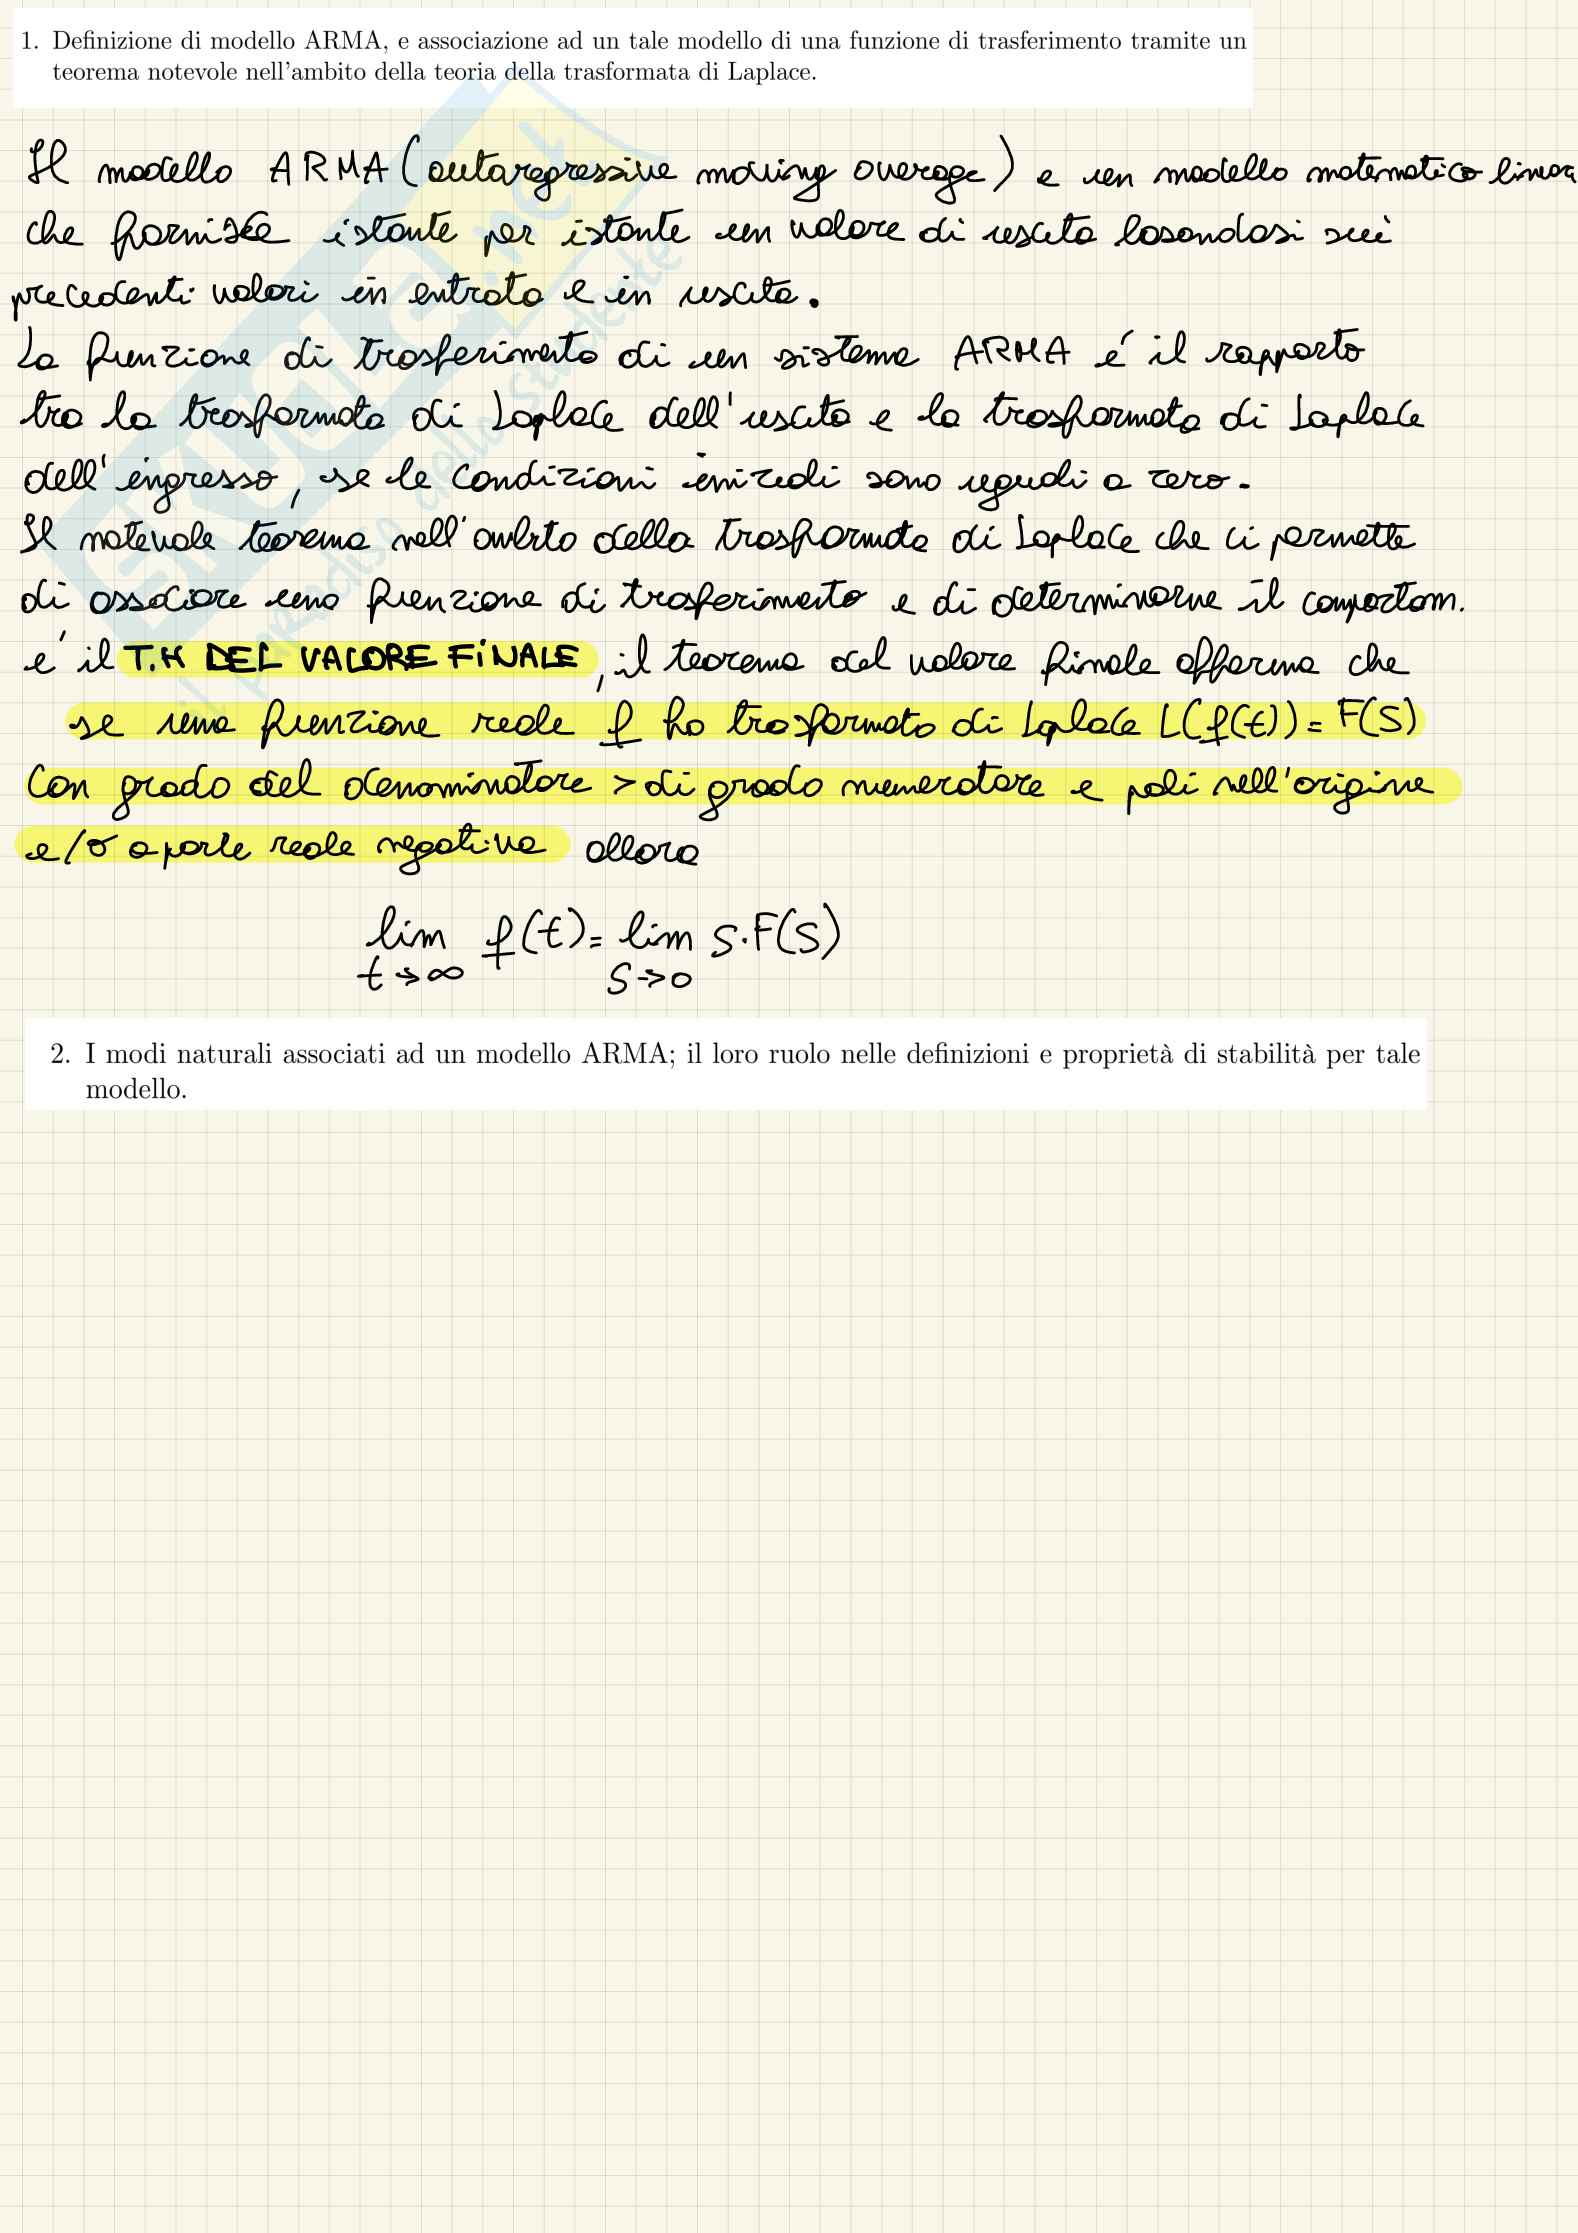 1. Definizione di modello ARMA, e associazione ad un tale modello di una funzione di trasferimento tramite un
teorema notevole nell'ambito della teoria della trasformata di Laplace.
Il modello ARMA (autoregressive moving average) e un modello matematico linear
che fornisce istante per istante un valore di uscita basandosi sui
precedenti valori in entrata e in uscita.
La funzione di trasferimento di un sistema ARMA é il rapporto
tra la trasformata di Laplace dell'uscita e la trasformata di Laplace
dell'ingresso, se le condizioni iniziali sono uguali a zero.
Il notevole teorema nell'ambito della trasformata di Laplace che ci permette
di associare una funzione di trasferimento e di determinarne il comportam.
e' il T.H DEL VALORE FINALE, il teorema del valore finale afferma che
se una funzione reale f ha trasformata di Laplace L(f(t)) = F(S)
con grado del denominatore > di grado numeratore e poli nell'origine
e/o a parte reale negativa allora
lim f(t) = lim S·F(S)
t→∞ S→0
2. I modi naturali associati ad un modello ARMA; il loro ruolo nelle definizioni e proprietà di stabilità per tale
modello.
SKUOLA.net
il paradiso dello studente